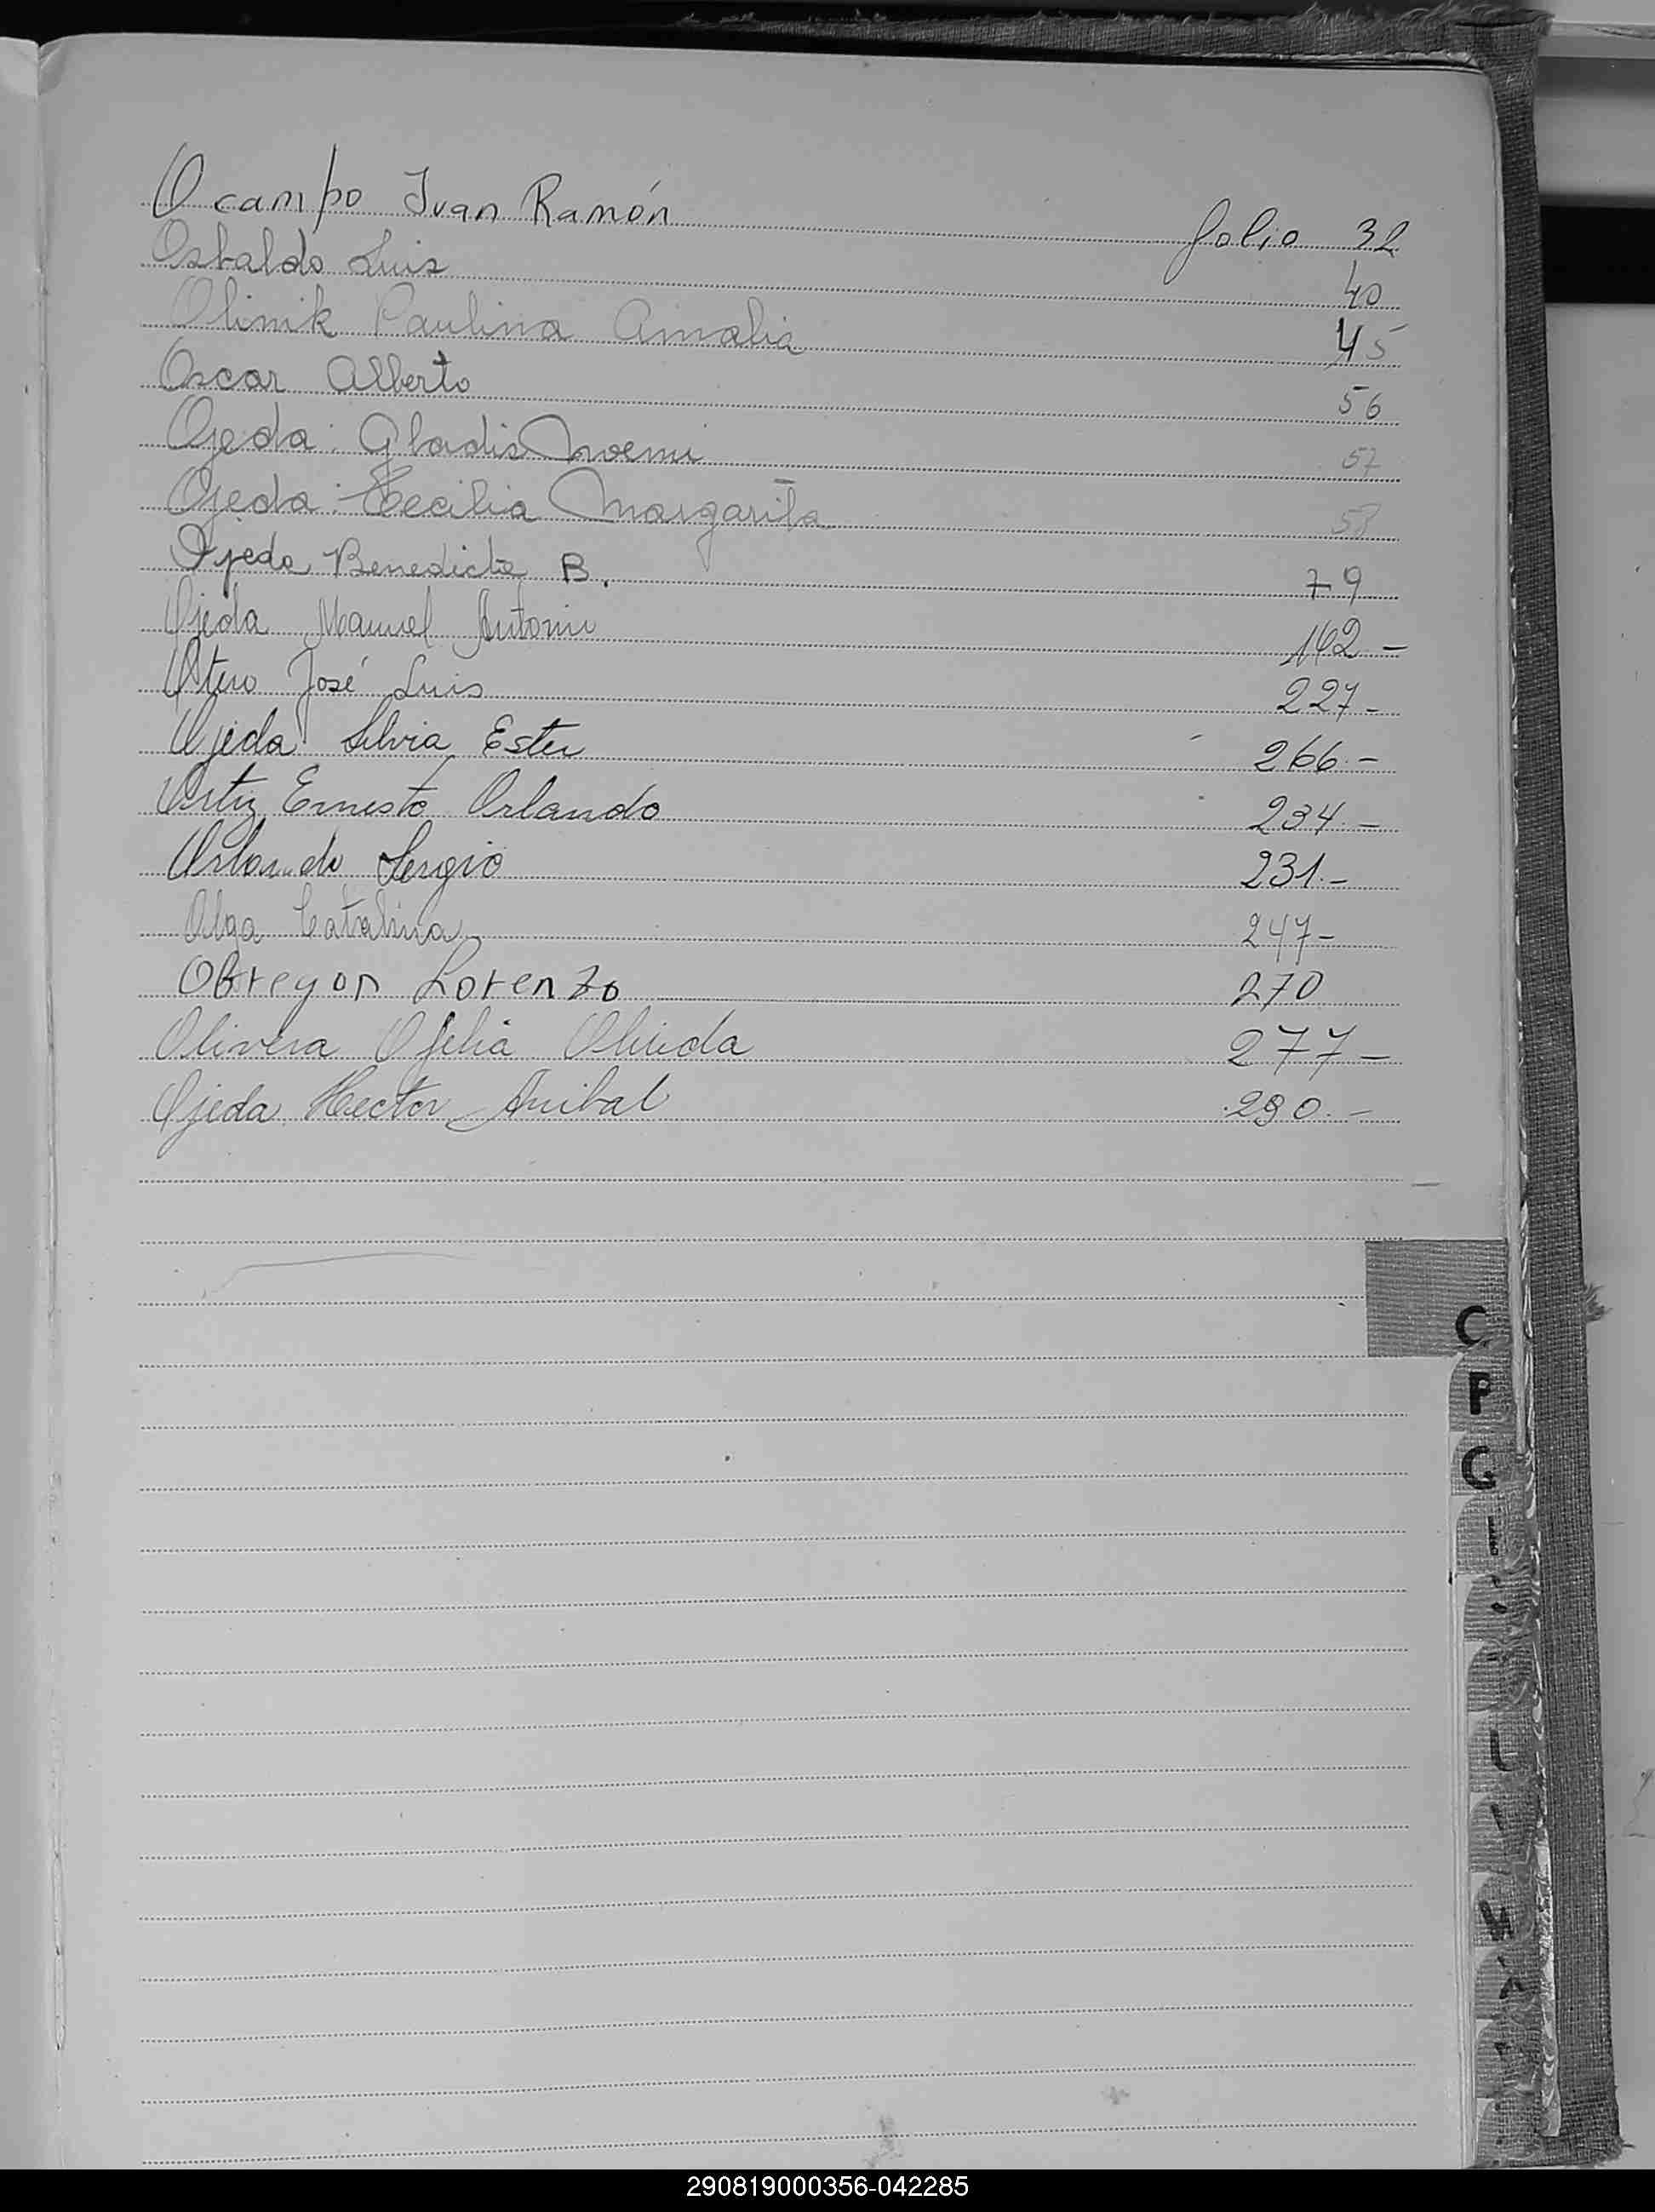 Ocampo Ivan Ramón folio 32
Osbaldo Luis 40
Olinik Paulina Amalia 45
Oscar Alberto 56
Ojeda: Gladis Noemi 57
Ojeda: Cecilia Margarita
Ojeda Benedicta B. 79
Ojeda Manuel Antonio 162-
Otero José Luis 227-
Ojeda Silvia Ester 266.-
Ortiz Ernesto Orlando 234.-
Orlando Sergio 231.-
Olga Catalina 247-
Obregon Lorenzo 270
Olivera Ofelia 277-
Ojeda Hector Anibal 290.-
P
290819000356-042285